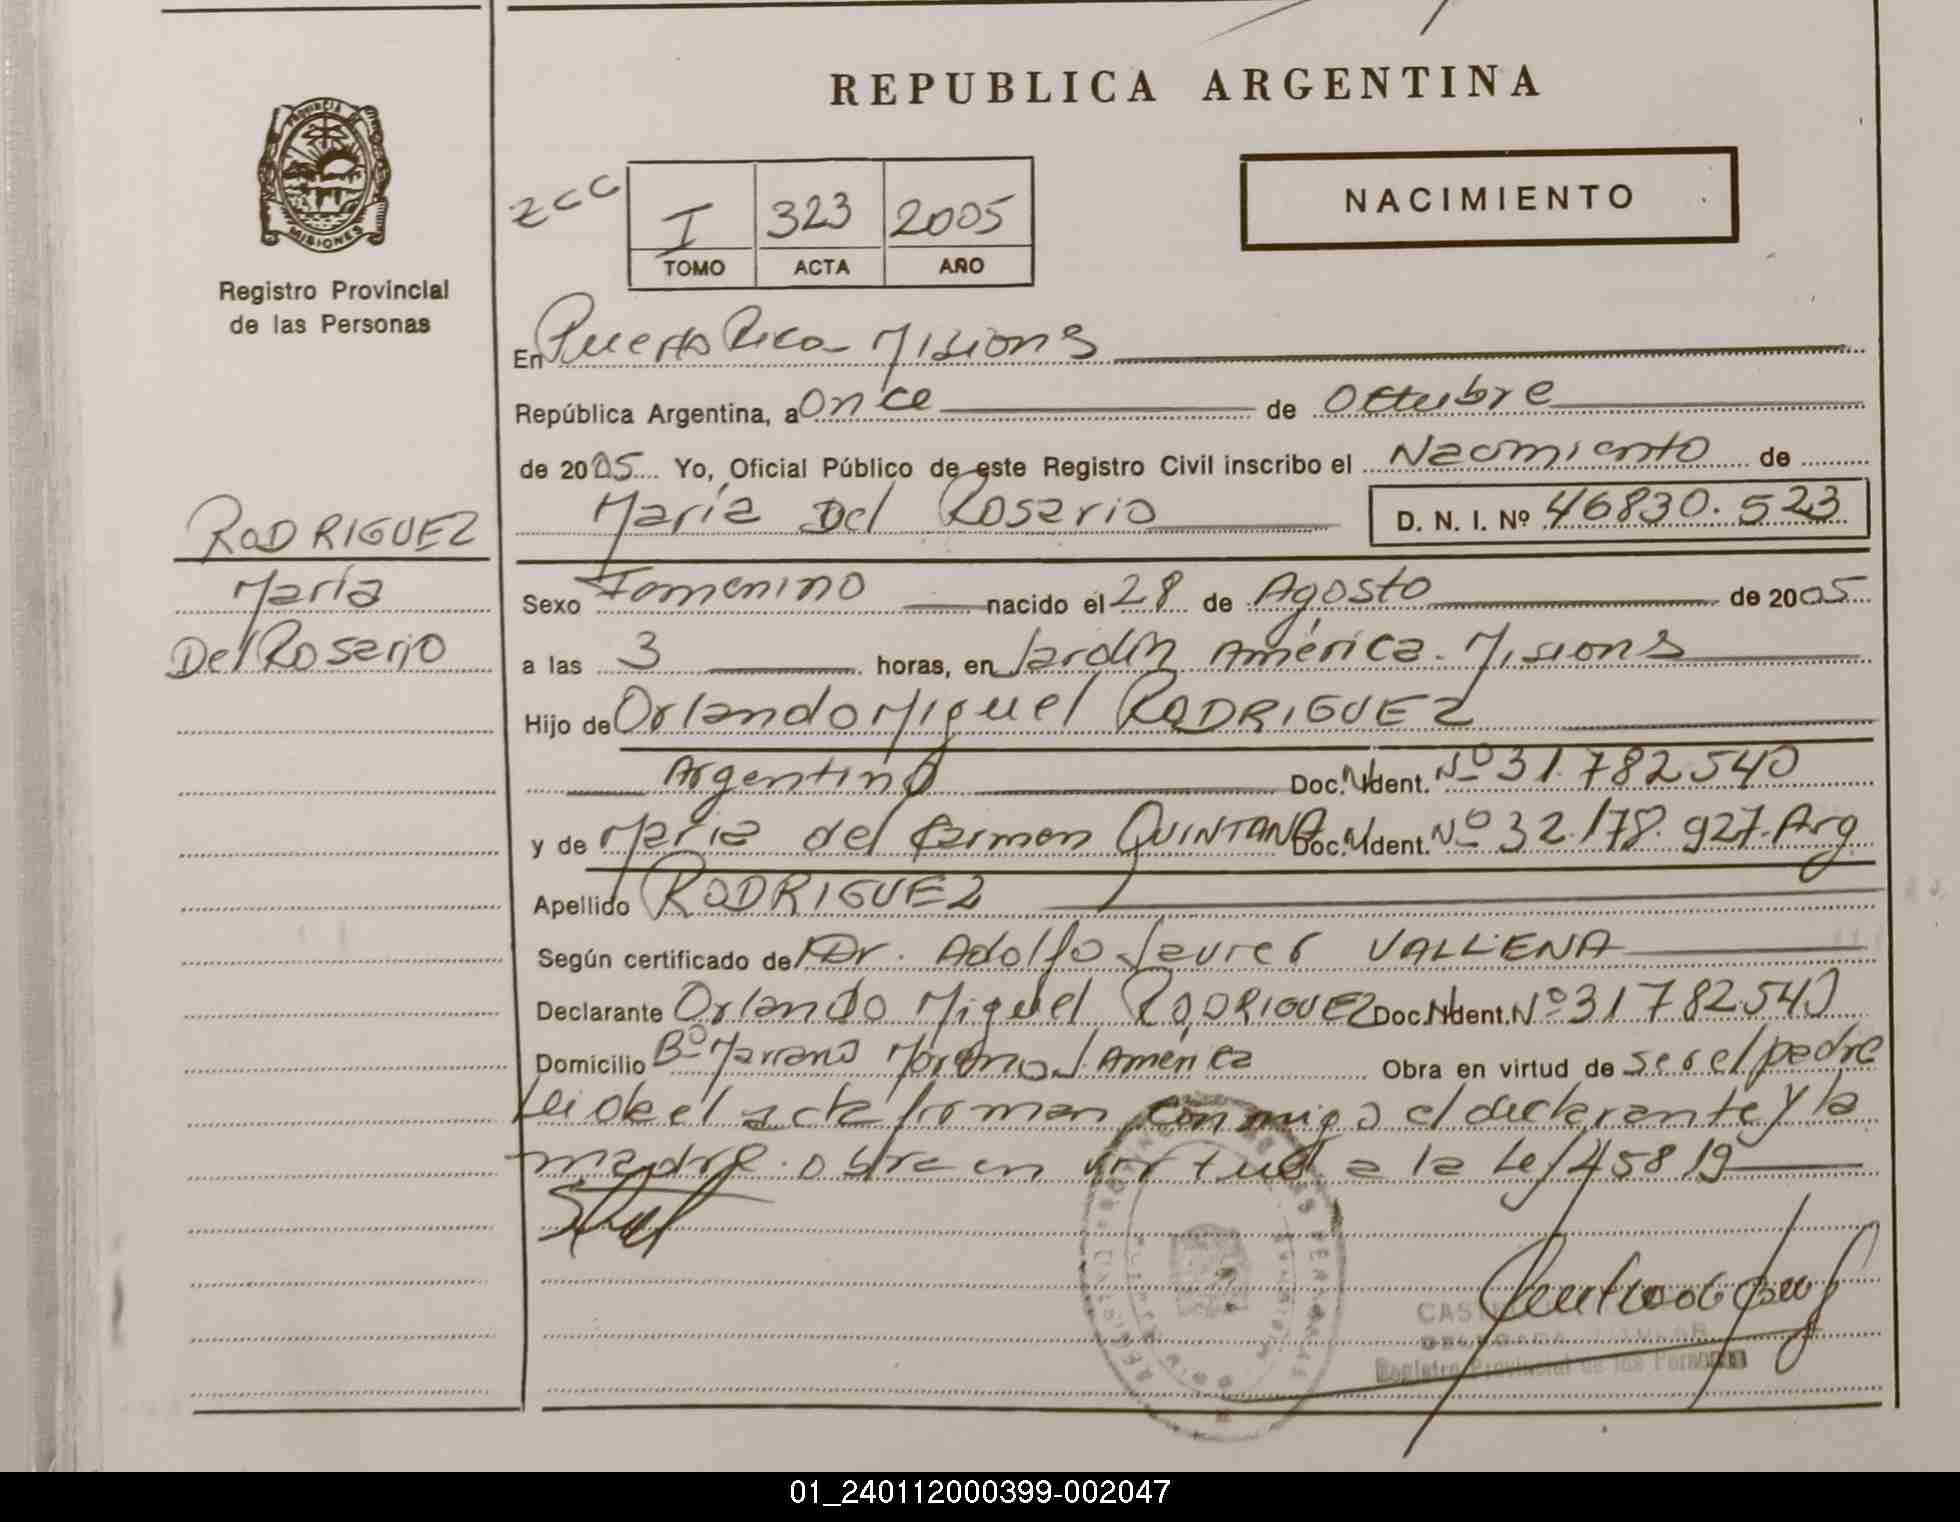 REPUBLICA ARGENTINA
PROVINCIA DE
MISIONES
Registro Provincial
de las Personas
zcc
I 323 2005
TOMO ACTA AÑO
NACIMIENTO
En Puerto Rico Misions
República Argentina, a Once de Octubre
de 2005 Yo, Oficial Público de este Registro Civil inscribo el Nacimiento de
María Del Rosario D. N. I. Nº 46830.523
RODRIGUEZ
María
Del Rosario
Sexo Femenino nacido el 28 de Agosto de 2005
a las 3 horas, en Jardín América. Misions
Hijo de Orlando Miguel RODRIGUEZ
Argentino Doc. Ident. Nº 31.782540
y de María del Carmen QUINTANA Doc. Ident. Nº 32.178.927. Arg
Apellido RODRIGUEZ
Según certificado de Dr. Adolfo Javier VALLENA
Declarante Orlando Miguel RODRIGUEZ Doc. Ident. Nº 31782540
Domicilio Bº Mariano Moreno J. América Obra en virtud de ser el padre
Leida el acta firman conmigo el declarante y la
madre. obra en virtud a la Ley 45819
Registro Provincial de las Personas
01_240112000399-002047